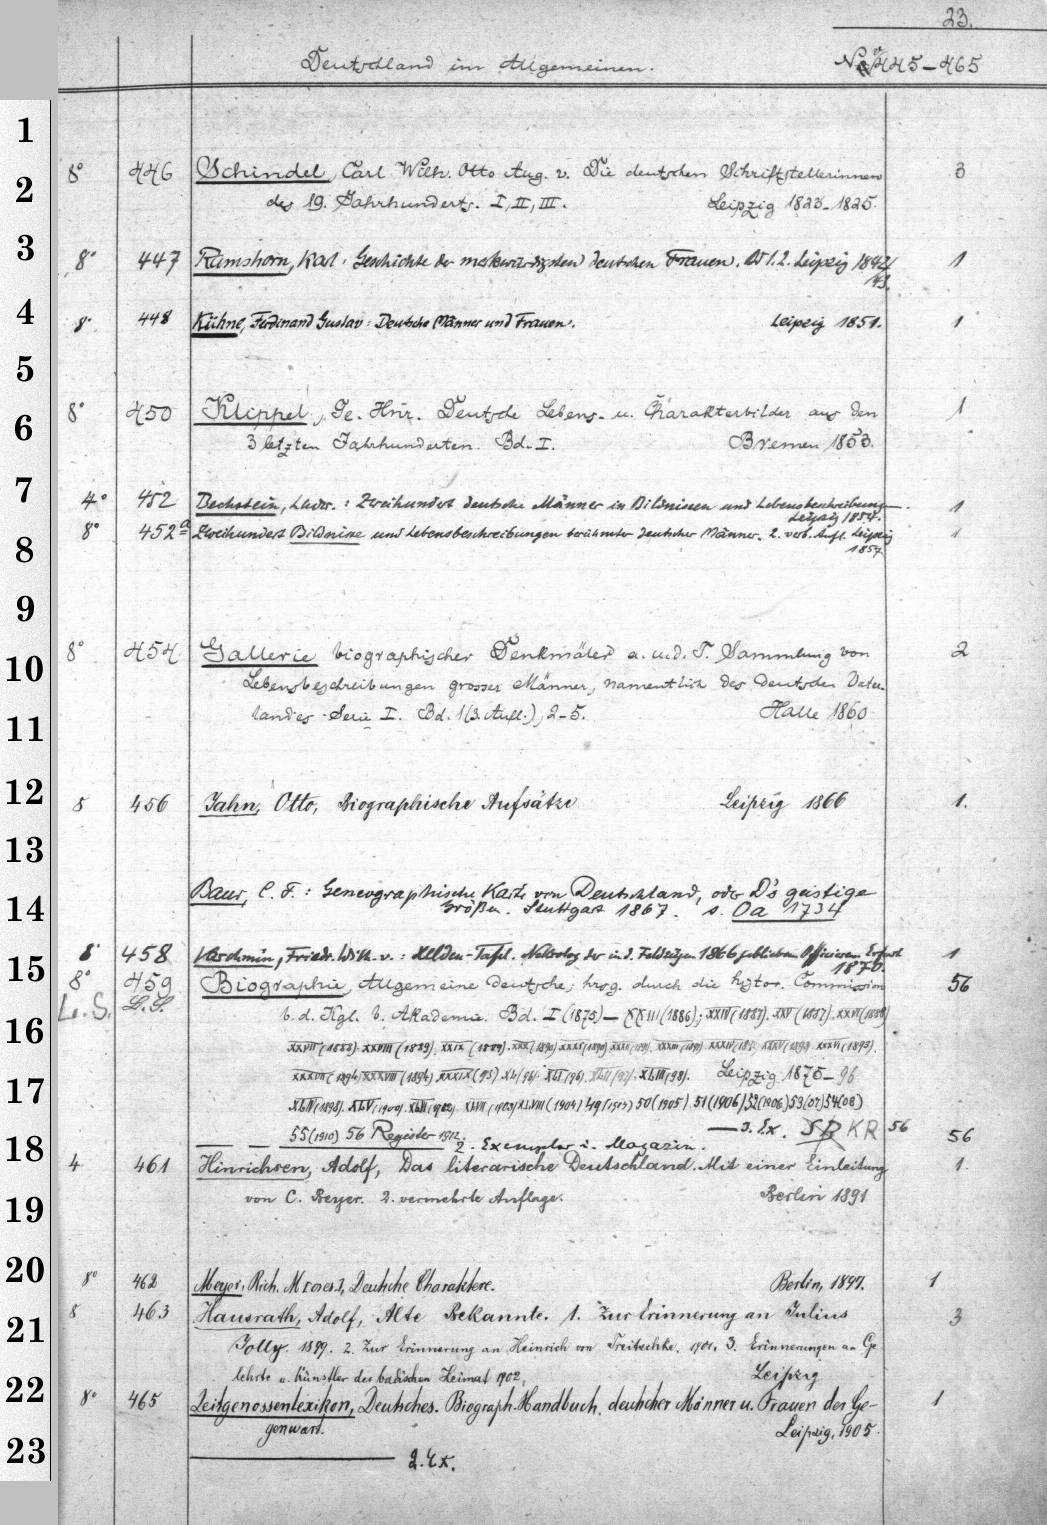 23.
Deutschland im Allgemeinen. No 445-465
1
8° 446 Schindel, Carl Wilh. Otto Aug. v. Die deutschen Schriftstellerinnen 3
2
des 19. Jahrhunderts. I, II, III. Leipzig 1823-1825.
3
8° 447 Ramshorn, Karl: Geschichte der merkwürdigsten deutschen Frauen. Bd 1.2. Leipzig 1842/ 1
43.
4
8° 448 Kühne, Ferdinand Gustav: Deutsche Männer und Frauen. Leipzig 1851. 1
5
8° 450 Klippel, Ge. Hnr. Deutsche Lebens- u. Charakterbilder aus den 1
6
3 letzten Jahrhunderten. Bd. I. Bremen 1853.
7
4° 452 Bechstein, Ludw.: Zweihundert deutsche Männer in Bildnissen und Lebensbeschreibung. 1
Leipzig 1854.
8° 452a Zweihundert Bildnisse und Lebensbeschreibungen berühmter deutscher Männer. 2. verb. Aufl. Leipzig 1
8
1857
9
8° 454 Gallerie biographischer Denkmäler a. u. d. T. Sammlung von 2
10
Lebensbeschreibungen grosser Männer, namentlich des deutschen Vater-
11
landes Serie I. Bd. 1 (3. Aufl.), 2-5. Halle 1860
12
8 456 Jahn, Otto, Biographische Aufsätze Leipzig 1866 1.
13
Baur, C. F.: Geneographische Karte von Deutschland, oder D's geistige
14
Größen. Stuttgart 1867. s. Oa 1734
8° 458 Friedr. Wilh. v.: Helden-Tafel. Nekrolog der in d. Feldzügen 1866 gebliebenen Officiere. Erfurt 1
15
1870.
8° 459 Biographie, Allgemeine deutsche, hrsg. durch die histor. Commission 56
L. S. L. S. b. d. Kgl. b. Akademie. Bd. I (1875) - XXIII (1886); XXIV (1887). XXV (1887). XXVI (1888)
16
XXVII (1888) XXVIII (1889) XXIX (1889).
17
XXXVII (1894) XXXVIII (1894) XXXIX (95) XL (96) XLI (96) XLII (97) XLIII (98). Leipzig 1875-96
XLIV (1898). XLV (1900) XLVIII (1904) 49 50 (1905) 51 (1906) 52 (1906) 53 (07) 54 (08)
55 (1910) 56 Register 1912. - 3. Ex. SB KR 56
18
2. Exemplar i. Magazin. 56
4 461 Hinrichsen, Adolf, Das literarische Deutschland. Mit einer Einleitung 1.
19
von C. Beyer. 2. vermehrte Auflage. Berlin 1891
20
8° 462 Meyer, Rich. M[oses], Deutsche Charaktere. Berlin, 1897. 1
8 463 Hausrath, Adolf, Alte Bekannte. 1. Zur Erinnerung an Julius 3
21
Jolly. 1899. 2. Zur Erinnerung an Heinrich von Treitschke. 1901. 3. Erinnerungen an Ge-
22
lehrte u. Künstler der badischen Heimat 1902. Leipzig
8° 465 Zeitgenossenlexikon, Deutsches. Biograph. Handbuch deutscher Männer u. Frauen der Ge- 1
23
genwart. Leipzig, 1905.
2. Ex.